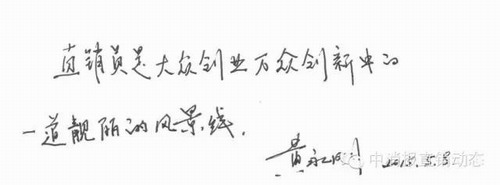 直销员是大众创业万众创新中的
一道靓丽的风景线。
黄永刚 2015.5.8
中直报直销动态